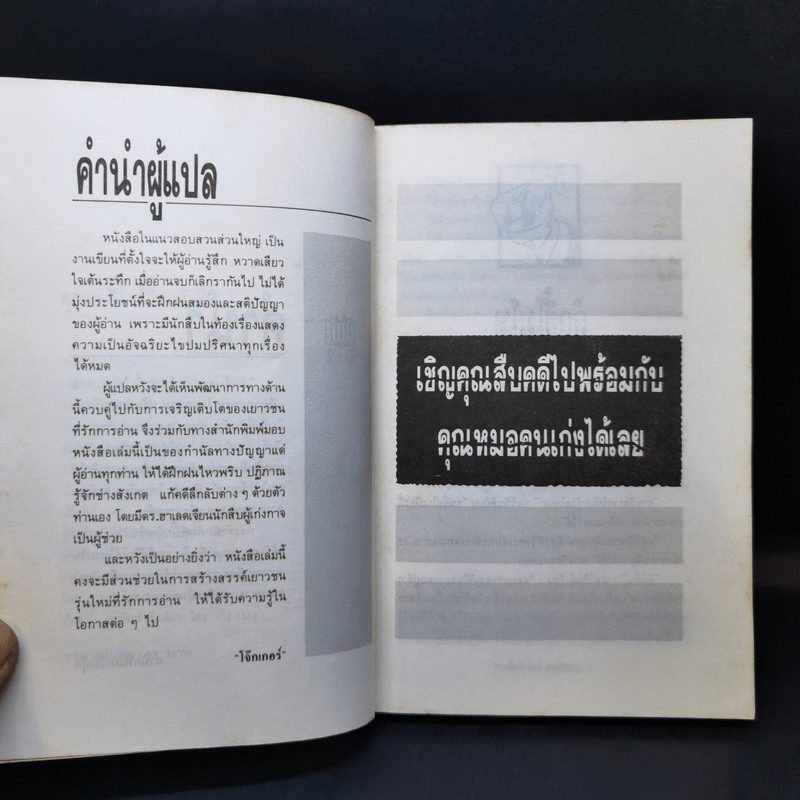 คำนำผู้แปล
หนังสือในแนวสอบสวนส่วนใหญ่ เป็น
งานเขียนที่ตั้งใจจะให้ผู้อ่านรู้สึก หวาดเสียว
ใจเต้นระทึก เมื่ออ่านจบก็เลิกรากันไป ไม่ได้
มุ่งประโยชน์ที่จะฝึกฝนสมองและสติปัญญา
ของผู้อ่าน เพราะมีนักสืบในท้องเรื่องแสดง
ความเป็นอัจฉริยะไขปมปริศนาทุกเรื่อง
ได้หมด
ผู้แปลหวังจะได้เห็นพัฒนาการทางด้าน
นี้ควบคู่ไปกับการเจริญเติบโตของเยาวชน
ที่รักการอ่าน จึงร่วมกับทางสำนักพิมพ์มอบ
หนังสือเล่มนี้เป็นของกำนัลทางปัญญาแด่
ผู้อ่านทุกท่าน ให้ได้ฝึกฝนไหวพริบ ปฏิภาณ
รู้จักช่างสังเกต แก้คดีลึกลับต่าง ๆ ด้วยตัว
ท่านเอง โดยมีดร.ฮาเลดเจียนนักสืบผู้เก่งกาจ
เป็นผู้ช่วย
และหวังเป็นอย่างยิ่งว่า หนังสือเล่มนี้
คงจะมีส่วนช่วยในการสร้างสรรค์เยาวชน
รุ่นใหม่ที่รักการอ่าน ให้ได้รับความรู้ใน
โอกาสต่อ ๆ ไป
"โจ๊กเกอร์"
เชิญคุณสืบคดีไปพร้อมกับ
คุณหมอคนเก่งได้เลย